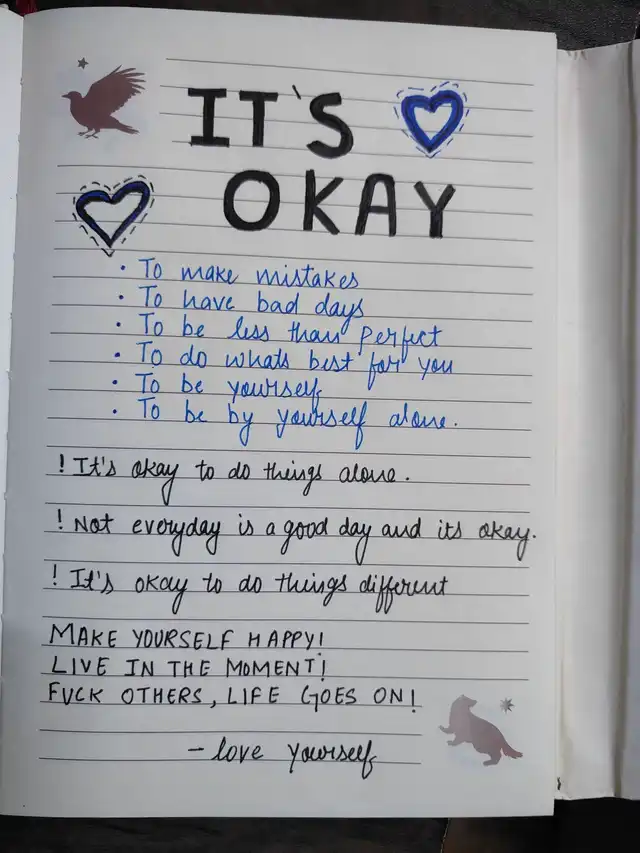 IT'S
OKAY
• To make mistakes
• To have bad days
• To be less than perfect
• To do whats best for you
• To be yourself
• To be by yourself alone.
! It's okay to do things alone.
! Not everyday is a good day and its okay.
! It's okay to do things different
MAKE YOURSELF HAPPY!
LIVE IN THE MOMENT!
FUCK OTHERS, LIFE GOES ON!
- love yourself